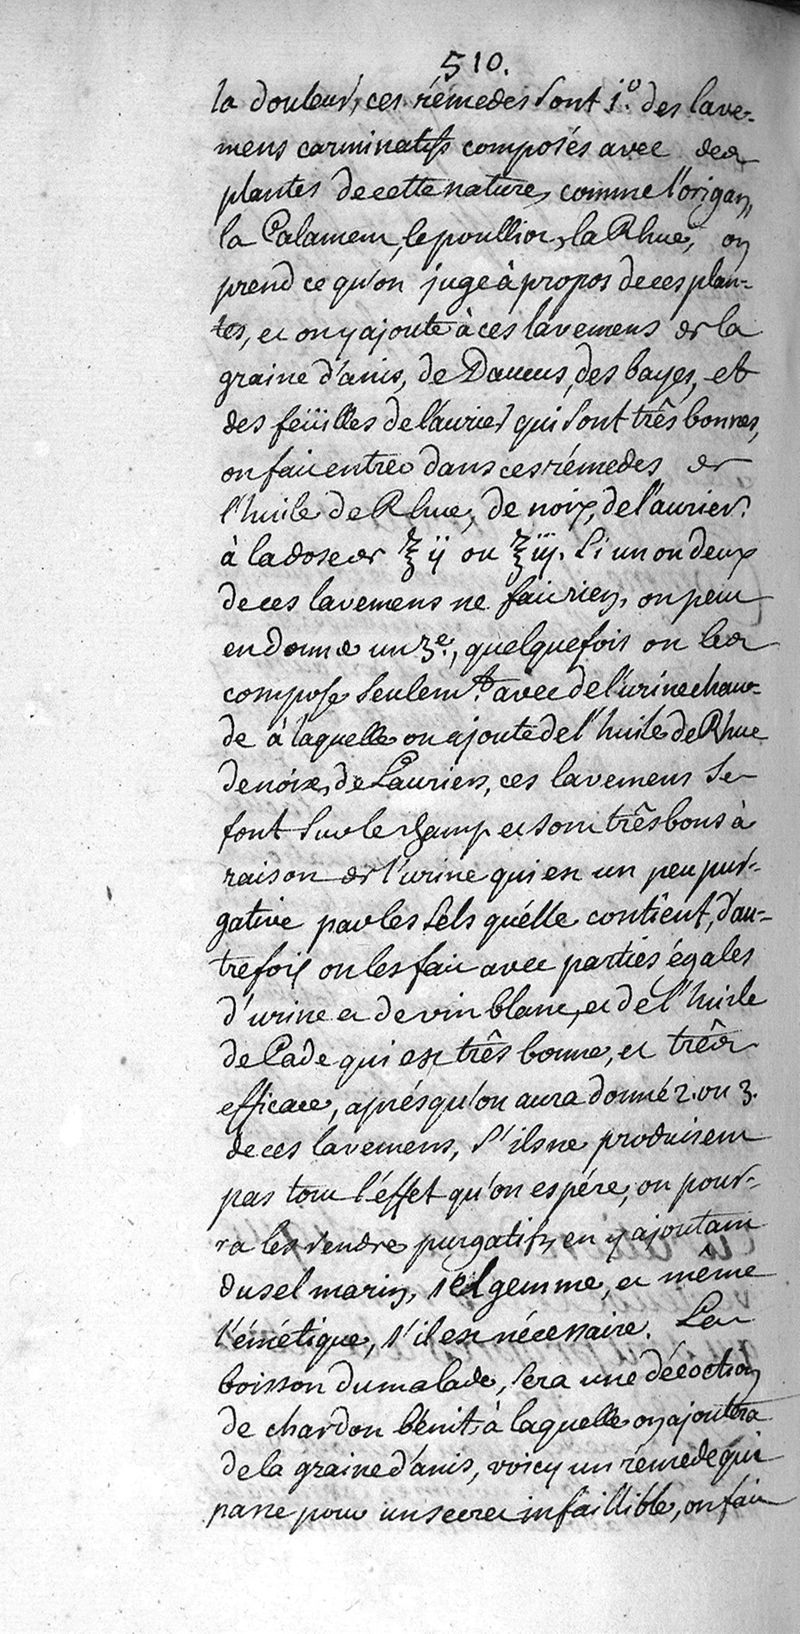 510.
la douleur, ces rémedes sont 1.° des lave-
mens carminatifs composés avec des
plantes de cette nature, comme l'origan,
la Calament, le poulliot, la Rhue, on
prend ce qu'on juge à propos de ces plan-
tes, et on y ajoute à ces lavemens de la
graine d'anis, de Daucus, des bayes, et
des feüilles de laurier qui sont três bonnes,
on fait entrer dans ces rémedes de
l'huile de Rhue, de noix, de laurier.
à la dose de ℥ ij ou ℥ iij. Si un ou deux
de ces lavemens ne fait rien, on peut
en donner un 3.e, quelquefois on les
compose seulem.t avec de l'urine chau-
de à laquelle on ajoute de l'huile de Rhue
de noix, de Lauriers, ces lavemens se
font sur le champ et sont três bons à
raison de l'urine qui est un peu pur-
gative par les sels qu'élle contient, d'au-
trefois on les fait avec parties égales
d'urine et de vin blanc, et de l'huile
de Cade qui est três bonne, et três
efficace, aprés qu'on aura donné 2. ou 3.
de ces lavemens, s'ils ne produisent
pas tout l'éffet qu'on espére, on pour-
ra les rendre purgatifs, en y ajoutant
du sel marin, sel gemme, et même
l'émétique, s'il est nécessaire. La
boisson du malade, sera une décoction
de chardon bénit, à laquelle on ajoutera
de la graine d'anis, voicy un rémede qui
passe pour un secret infaillible, on fait